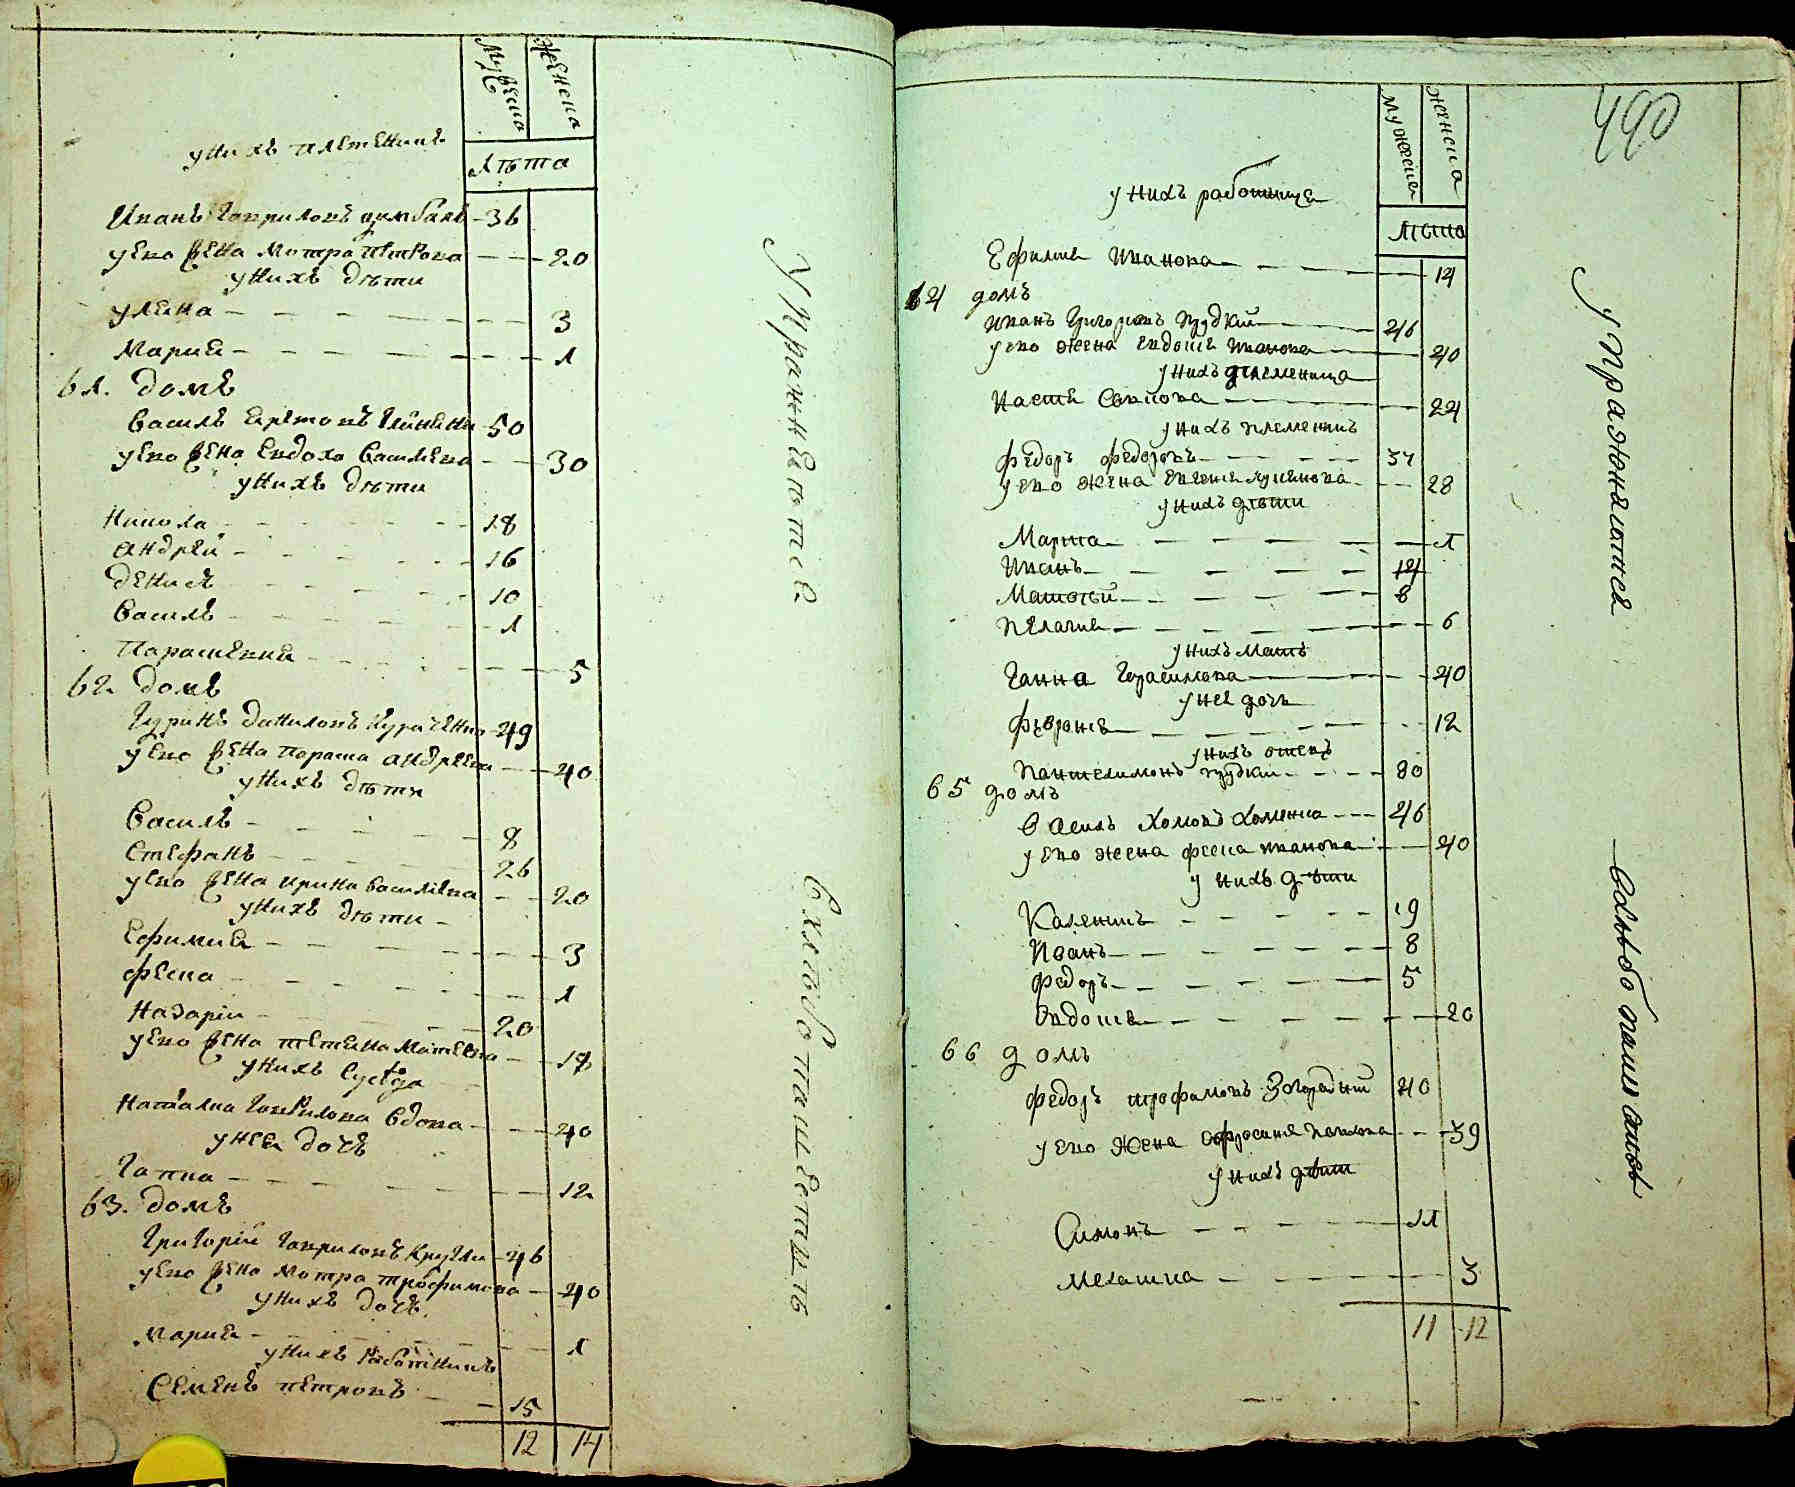 Мужеска
женска
у нихъ племеникъ
лѣта
Иванъ Гавриловъ цимбалъ 36
у его жена Мотра Петрова 20
у нихъ дѣти
улияна 3
Мария 1
61. домъ
Василь
50
у его жена Евдоха Василева 30
у нихъ дѣти
Никола 18
андрей 16
денисъ 10
Василь 1
Парасковия 5
62. домъ
Гуринъ даниловъ Кураченко 49
у его жена Параска андреева 40
у нихъ дѣти
Василь 8
Стефанъ 26
у его жена ирина василиева 20
у нихъ дѣти
Ефимия 3
феска 1
Назарій 20
у его жена тетяна Матвева 18
у нихъ Суседа
Наталка Гаврилова вдова 40
у нея дочь
Гапка 12
63. домъ
Григорій Гавриловъ Кругли 46
у его жена Мотра трофимова 40
у нихъ дочь
Мария 1
у нихъ работникъ
Семенъ петровъ 15
12 14
Упражняется
в хлѣбопашествѣ
490
мужеска
женска
лѣта
у нихъ работница
Ефимия Иванова 14
64 домъ
иванъ Григоровъ Грудкий 46
у его жена евдокия иванова 40
у нихъ племеница
Настя Савкова 24
у нихъ племеникъ
федоръ федоровъ 37
у его жена Евгения
28
у нихъ дѣти
Марта 1
Иванъ 14
Матвѣй 8
пелагия 6
у нихъ мать
Ганна Герасимова 40
у ней дочь
февроня 12
у нихъ отецъ
Пантелимонъ грудки 80
65 домъ
Василь Хомовъ Хоменко 46
у его жена феска иванова 40
у нихъ дѣти
Каленикъ 19
Иванъ 8
федоръ 5
Евдокия 20
66 домъ
федоръ трофимовъ Загородний 40
у его жена ефросиния Павлова 39
у нихъ дѣти
Симонъ 11
Мелашка 3
11 12
упражняется
в хлебопашествѣ